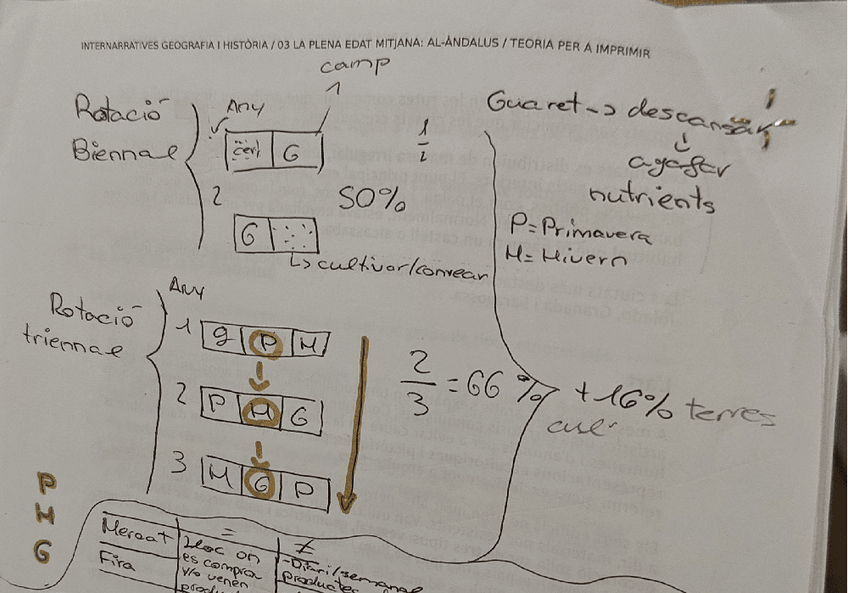 INTERNARRATIVES GEOGRAFIA I HISTÒRIA / 03 LA PLENA EDAT MITJANA: AL-ÀNDALUS / TEORIA PER A IMPRIMIR
camp
Rotació
Biennal
Any
G
2
50%
G
↳ cultivar/conrear
Guaret → descansar
↓
agafar
nutrients
P=Primavera
H=Hivern
Rotació
triennal
Any
1 g P H
2 P H G
3 H G P
2/3 = 66%
+16% terres
P
H
G
Mercat
Fira
=
Lloc on
es compra
y/o venen
≠
-Diari/semanal
productes